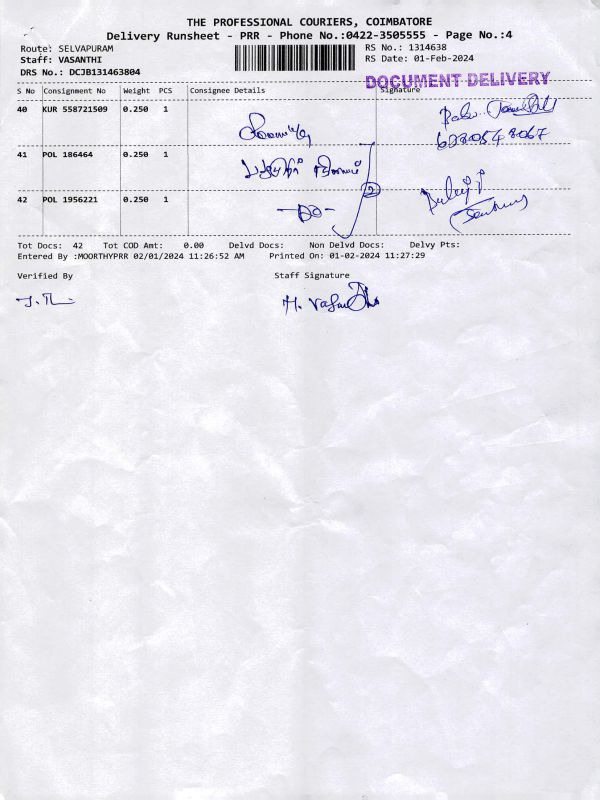 THE PROFESSIONAL COURIERS, COIMBATORE
Delivery Runsheet - PRR - Phone No.:0422-3505555 - Page No.:4
Route: SELVAPURAM
RS No.: 1314638
Staff: VASANTHI
RS Date: 01-Feb-2024
DRS No.: DCJB131463804
DOCUMENT DELIVERY
S No Consignment No Weight PCS Consignee Details Signature
40 KUR 558721509 0.250 1
41 POL 186464 0.250 1
2
42 POL 1956221 0.250 1
Tot Docs: 42 Tot COD Amt: 0.00 Delvd Docs: Non Delvd Docs: Delvy Pts:
Entered By :MOORTHYPRR 02/01/2024 11:26:52 AM Printed On: 01-02-2024 11:27:29
Verified By Staff Signature